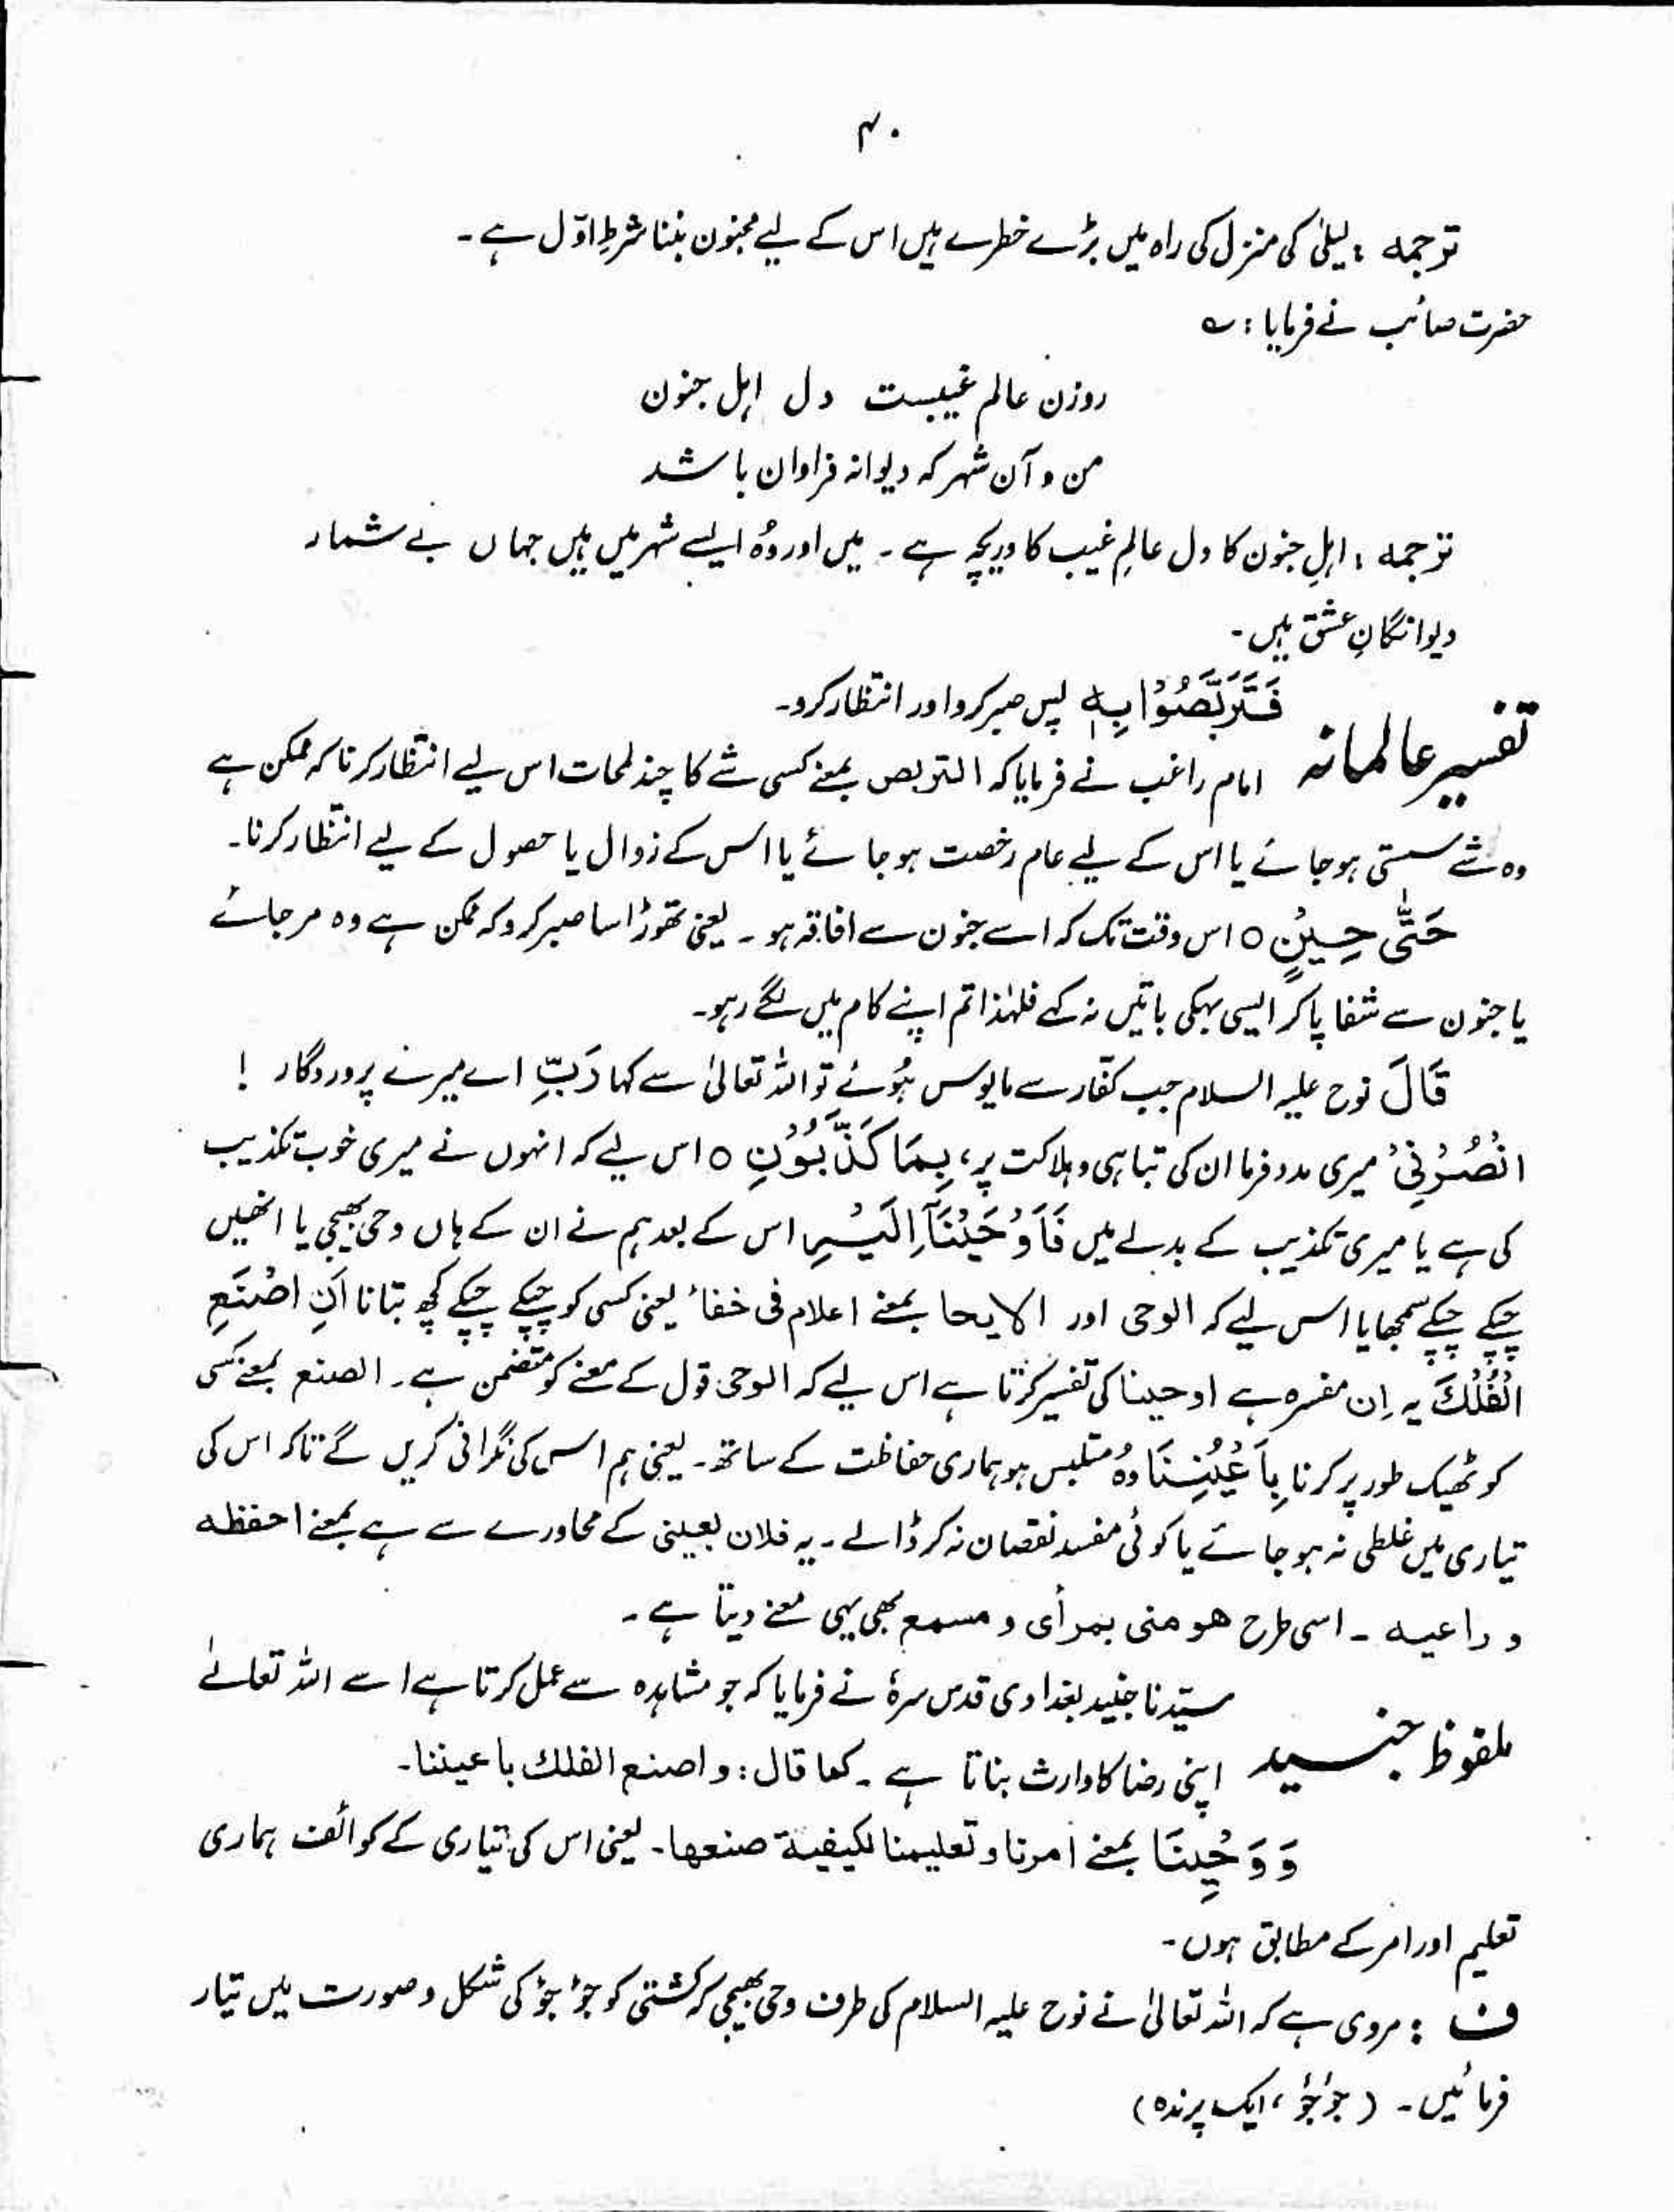 ۴۰
ترجمہ : لیلیٰ کی منزل کی راہ میں بڑے خطرے ہیں اس کے لیے مجنون بننا شرطِ اوّل ہے ۔
حضرت صائب نے فرمایا : ؎
روزن عالم غیبست دل اہل جنون
من و آن شہر کہ دیوانہ فراوان باشد
ترجمہ : اہلِ جنون کا دل عالمِ غیب کا دریچہ ہے ۔ میں اور وُہ ایسے شہر میں ہیں جہاں بے شمار
دیوانگانِ عشق ہیں ۔
تفسیر عالمانہ فَتَرَبَّصُوْا بِهٖ پس صبر کرو اور انتظار کرو ۔
امام راغب نے فرمایا کہ التربص بمعنے کسی شے کا چند لمحات اس لیے انتظار کرنا کہ ممکن ہے
وہ شے سستی ہو جائے یا اس کے لیے عام رخصت ہو جائے یا اس کے زوال یا حصول کے لیے انتظار کرنا ۔
حَتّٰى حِيْنٍ ○ اس وقت تک کہ اسے جنون سے افاقہ ہو ۔ یعنی تھوڑا سا صبر کرو کہ ممکن ہے وہ مر جائے
یا جنون سے شفا پا کر ایسی بہکی باتیں نہ کہے فلہٰذا تم اپنے کام میں لگے رہو ۔
قَالَ نوح علیہ السلام جب کفّار سے مایوس ہُوئے تو اللہ تعالیٰ سے کہا رَبِّ اے میرے پروردگار !
انْصُرْنِیْ میری مدد فرما ان کی تباہی و ہلاکت پر ، بِمَا كَذَّبُوْنِ ○ اس لیے کہ انہوں نے میری خوب تکذیب
کی ہے یا میری تکذیب کے بدلے میں فَاَوْحَيْنَآ اِلَيْهِ اس کے بعد ہم نے ان کے ہاں وحی بھیجی یا انھیں
چپکے چپکے سمجھایا اس لیے کہ الوحی اور الایحا بمعنے اعلام فی خفاء یعنی کسی کو چپکے چپکے کچھ بتانا اَنِ اصْنَعِ
الْفُلْكَ یہ اِن مفسرہ ہے اوحینا کی تفسیر کرتا ہے اس لیے کہ الوحی قول کے معنے کو متضمن ہے ۔ الصنع بمعنے کسی
کو ٹھیک طور پر کرنا بِاَعْيُنِنَا وُہ متلبس ہو ہماری حفاظت کے ساتھ ۔ یعنی ہم اس کی نگرانی کریں گے تاکہ اس کی
تیاری میں غلطی نہ ہو جائے یا کوئی مفسد نقصان نہ کر ڈالے ۔ یہ فلان بعینی کے محاورے سے ہے بمعنے احفظہ
و راعیہ ۔ اسی طرح ھو منی بمرأی و مسمع بھی یہی معنے دیتا ہے ۔
ملفوظ جنید سیّدنا جنید بغدادی قدس سرہٗ نے فرمایا کہ جو مشاہدہ سے عمل کرتا ہے اسے اللہ تعالےٰ
اپنی رضا کا وارث بناتا ہے ۔ کما قال : و اصنع الفلك باعیننا ۔
وَ وَحْيِنَا بمعنے امرنا و تعلیمنا لکیفیۃ صنعھا ۔ یعنی اس کی تیاری کے کوائف ہماری
تعلیم اور امر کے مطابق ہوں ۔
ف : مروی ہے کہ اللہ تعالیٰ نے نوح علیہ السلام کی طرف وحی بھیجی کہ کشتی کو جؤ جؤ کی شکل و صورت میں تیار
فرمائیں ۔ ( جؤجؤ ، ایک پرندہ )